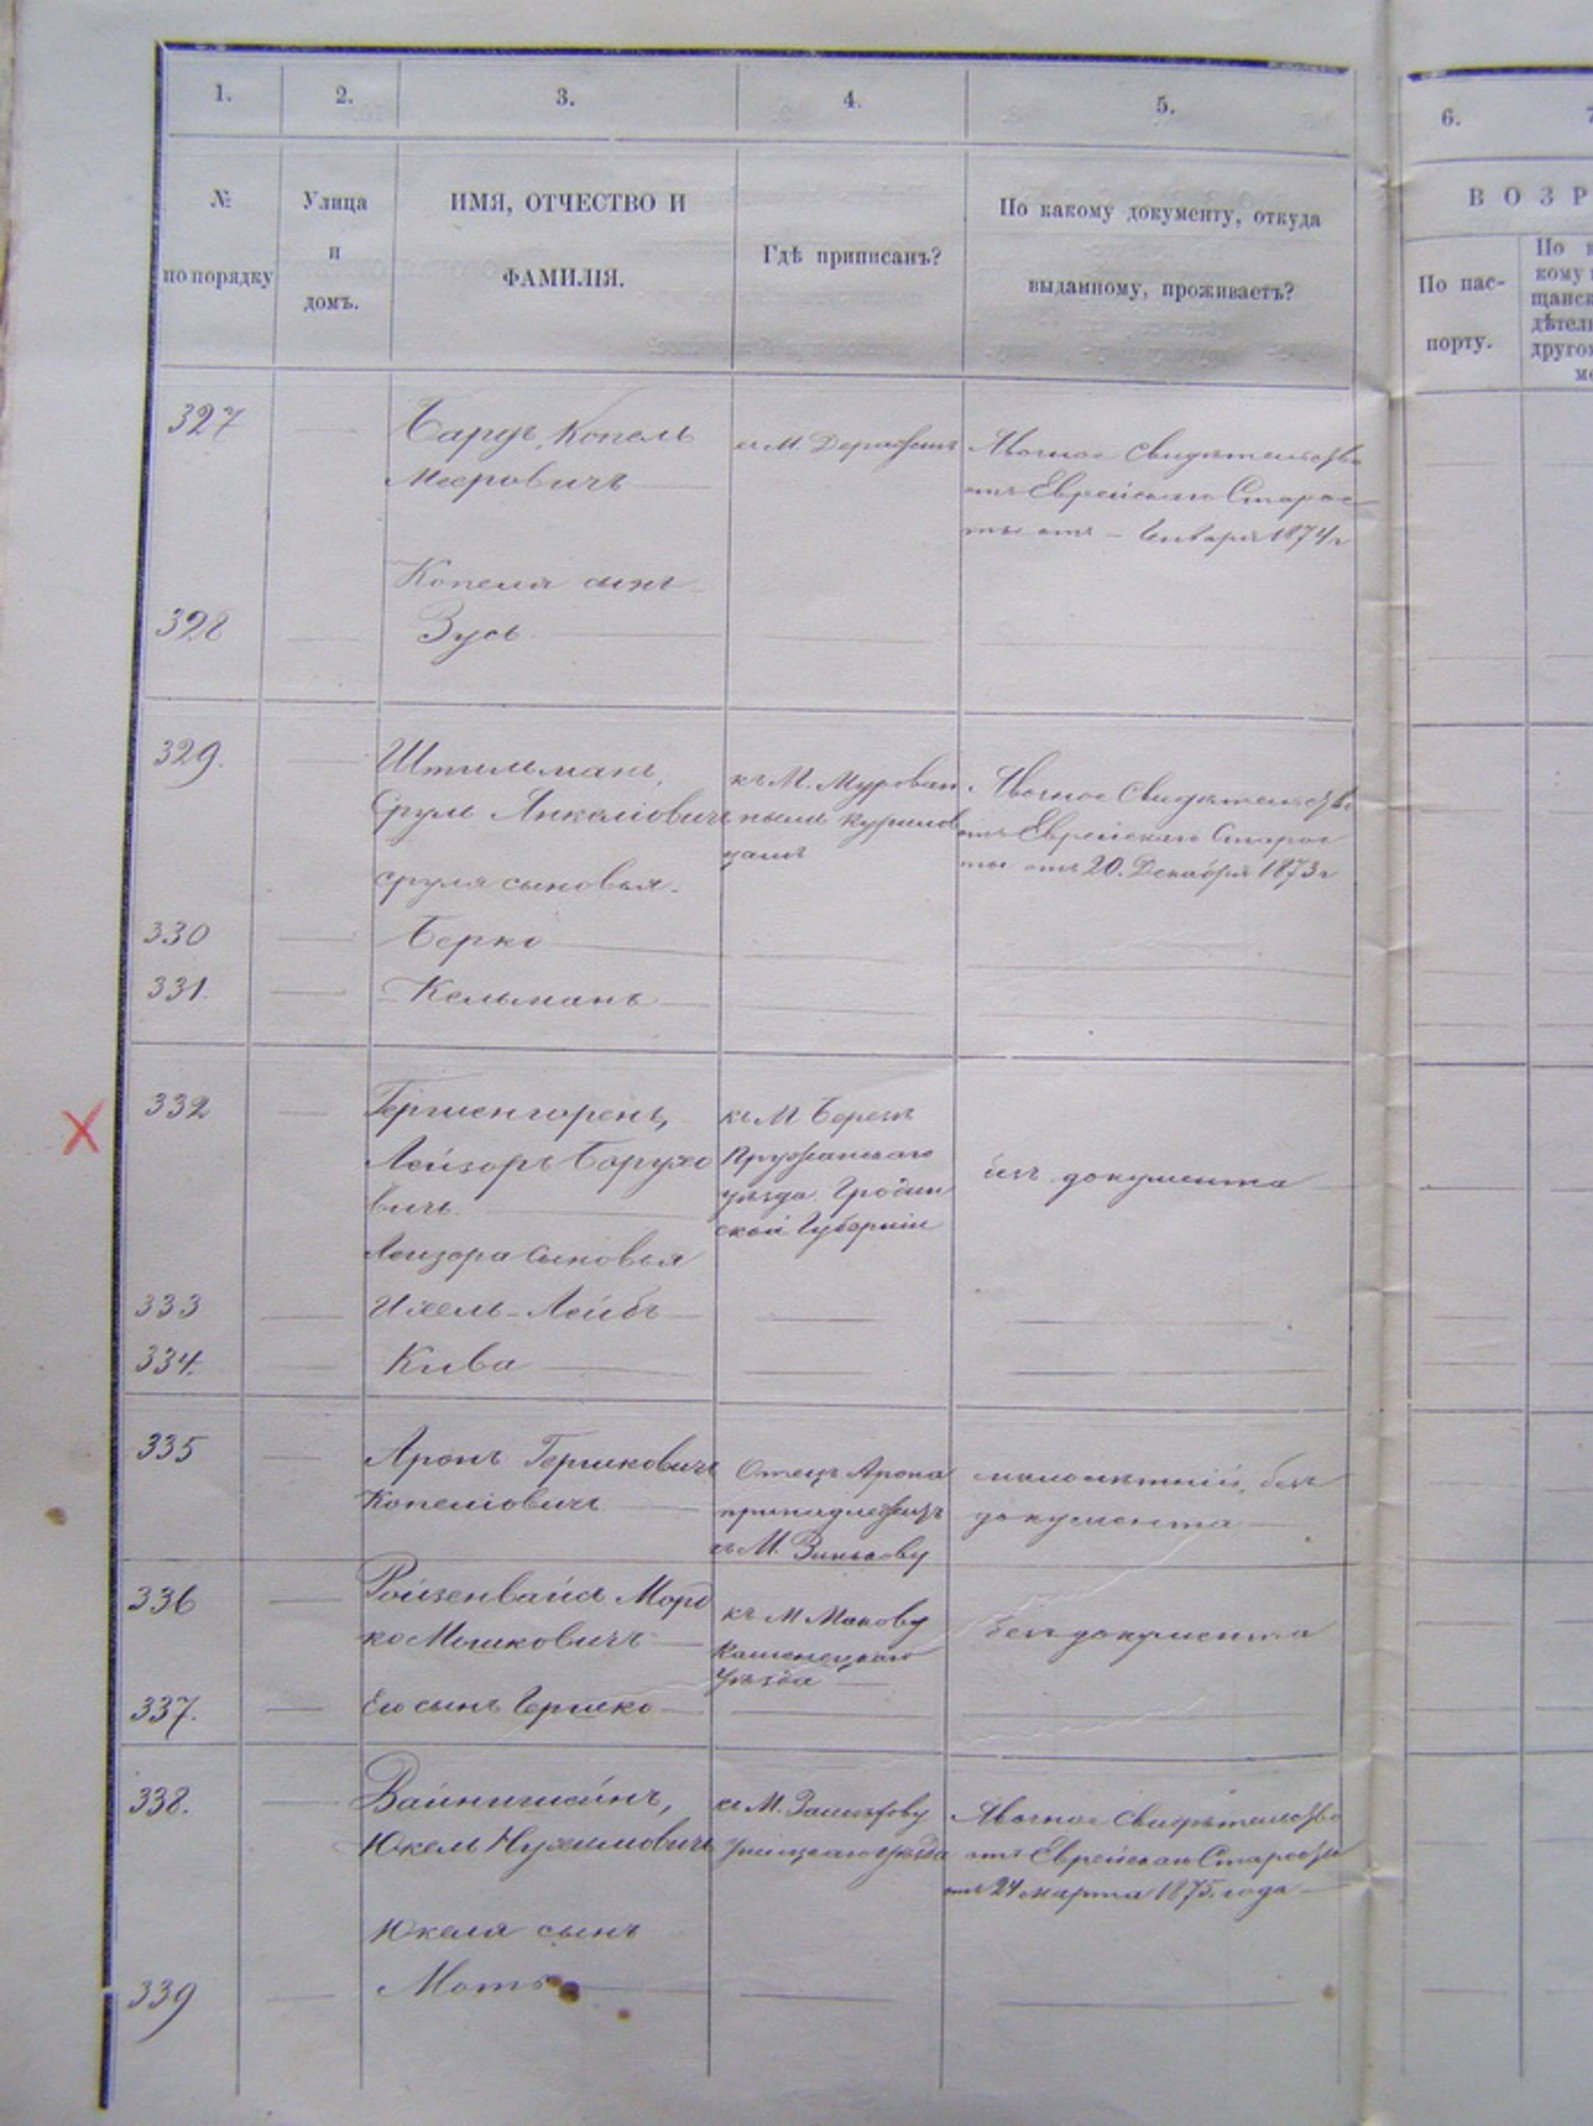 1.
2.
3.
4.
5.
6.
7
№
по порядку
Улица
и
домъ.
ИМЯ, ОТЧЕСТВО И
ФАМИЛІЯ.
Гдѣ приписанъ?
По какому документу, откуда
выданному, проживаетъ?
ВОЗР
По пас-
порту.
По к
кому
щанск
дѣтел
другом
327
Бардъ, Копель
Мееровичъ
къ М. Деражнѣ
Явочное свидѣтельство
отъ Еврейскаго Старос
ты отъ – Января 1874 г
Копеля сынъ
328
Зусь
329.
Штильманъ,
Сруль Янкеліовичъ
къ М. Мурован
нымъ Курилов
цамъ
Явочное Свидѣтельство
отъ Еврейскаго Старос
ты отъ 20. Декабря 1873 г
Сруля сыновья.
330
Берко
331.
Кельманъ
332
Лейзоръ Борухо
вичъ
къ М Березѣ
Пружанскаго
уѣзда Гроднен
ской Губерніи
безъ документа
Лейзора Сыновья
333
Ихель-Лейбъ
334.
Кива
335
Аронъ Гершковичъ
Копеліовичъ
Отецъ Арона
принадлежитъ
къ М. Зинькову
малолѣтній, безъ
документа
336
Ройзенвайсъ Морд
ко Мошковичъ
къ М Макову
Каменецкаго
Уѣзда
безъ документа
337.
Его сынъ Гершко
338.
Вайнштейнъ,
Юкель Нухимовичъ
къ М.
Ушицкаго уѣзда
Явочное свидѣтельство
отъ Еврейскаго Старосты
отъ 24 марта 1875 года
Юкеля сынъ
339
Моть